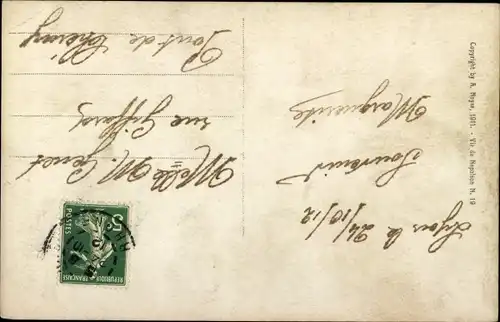 Lyon le 24/10/12
Souvenir
Marguerite
Melle M. Genet
rue Giffard
Pont de Chéruy
Copyright by A. Noyer, 1911. - Vie de Napoléon N. 19
5
POSTES
REPUBLIQUE FRANÇAISE